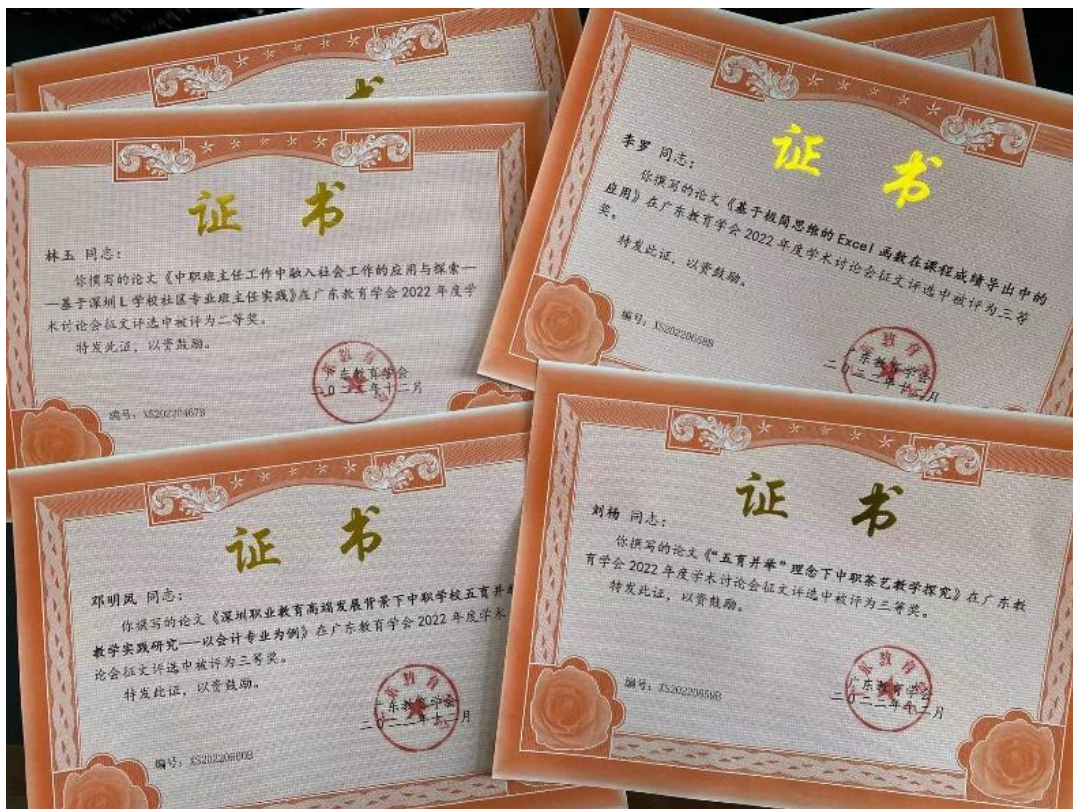 证 书
林玉 同志：
你撰写的论文《中职班主任工作中融入社会工作的应用与探索—
—基于深圳L学校社区专业班主任实践》在广东教育学会2022年度学
术讨论会征文评选中被评为二等奖。
特发此证，以资鼓励。
广东教育学会
二〇二二年十二月
编号：XS20220467B
证 书
李罗 同志：
你撰写的论文《基于极简思维的Excel函数在课程成绩导出中的
应用》在广东教育学会2022年度学术讨论会征文评选中被评为三等
奖。
特发此证，以资鼓励。
编号：XS20220658B
广东教育学会
二〇二二年十二月
证 书
邓明凤 同志：
你撰写的论文《深圳职业教育高端发展背景下中职学校五育并
教学实践研究——以会计专业为例》在广东教育学会2022年度学术
论会征文评选中被评为三等奖。
特发此证，以资鼓励。
广东教育学会
二〇二二年十二月
编号：XS20220660B
证 书
刘杨 同志：
你撰写的论文《“五育并举”理念下中职茶艺教学探究》在广东教
育学会2022年度学术讨论会征文评选中被评为三等奖。
特发此证，以资鼓励。
编号：XS20220659B
广东教育学会
二〇二二年十二月